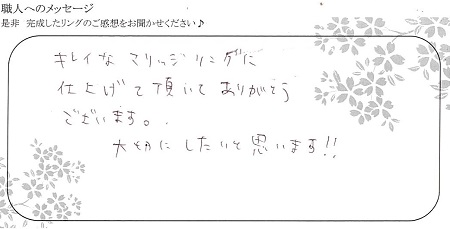 職人へのメッセージ
是非 完成したリングのご感想をお聞かせください♪
キレイな マリッジリングに
仕上げて頂いて ありがとう
ございます。
大切に したいと 思います!!